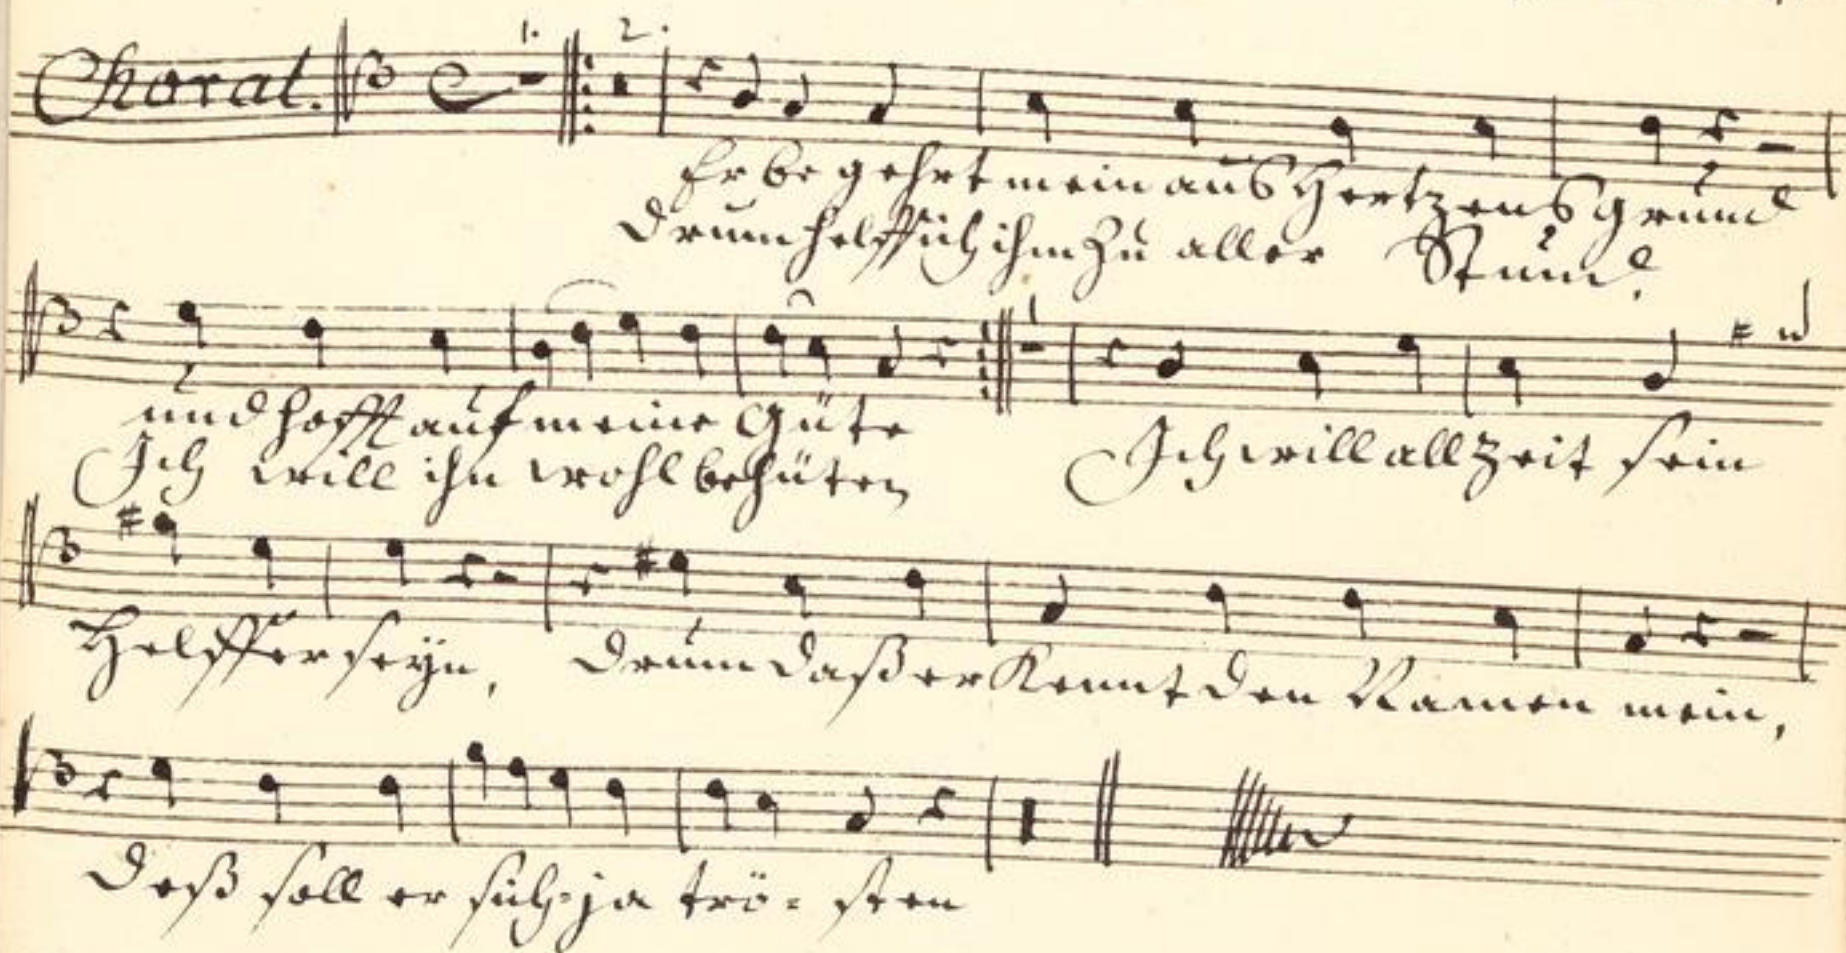 Choral.
1. 2.
Er begehrt mein aus Hertzens grund
drum helff ich ihm zu aller Stund.
und hofft auf meine Güte
Ich will ihn wohl behüten
Ich will allzeit sein
Helffer seyn,
drum daß er Kennt den Namen mein,
deß soll er sich ja trö- sten